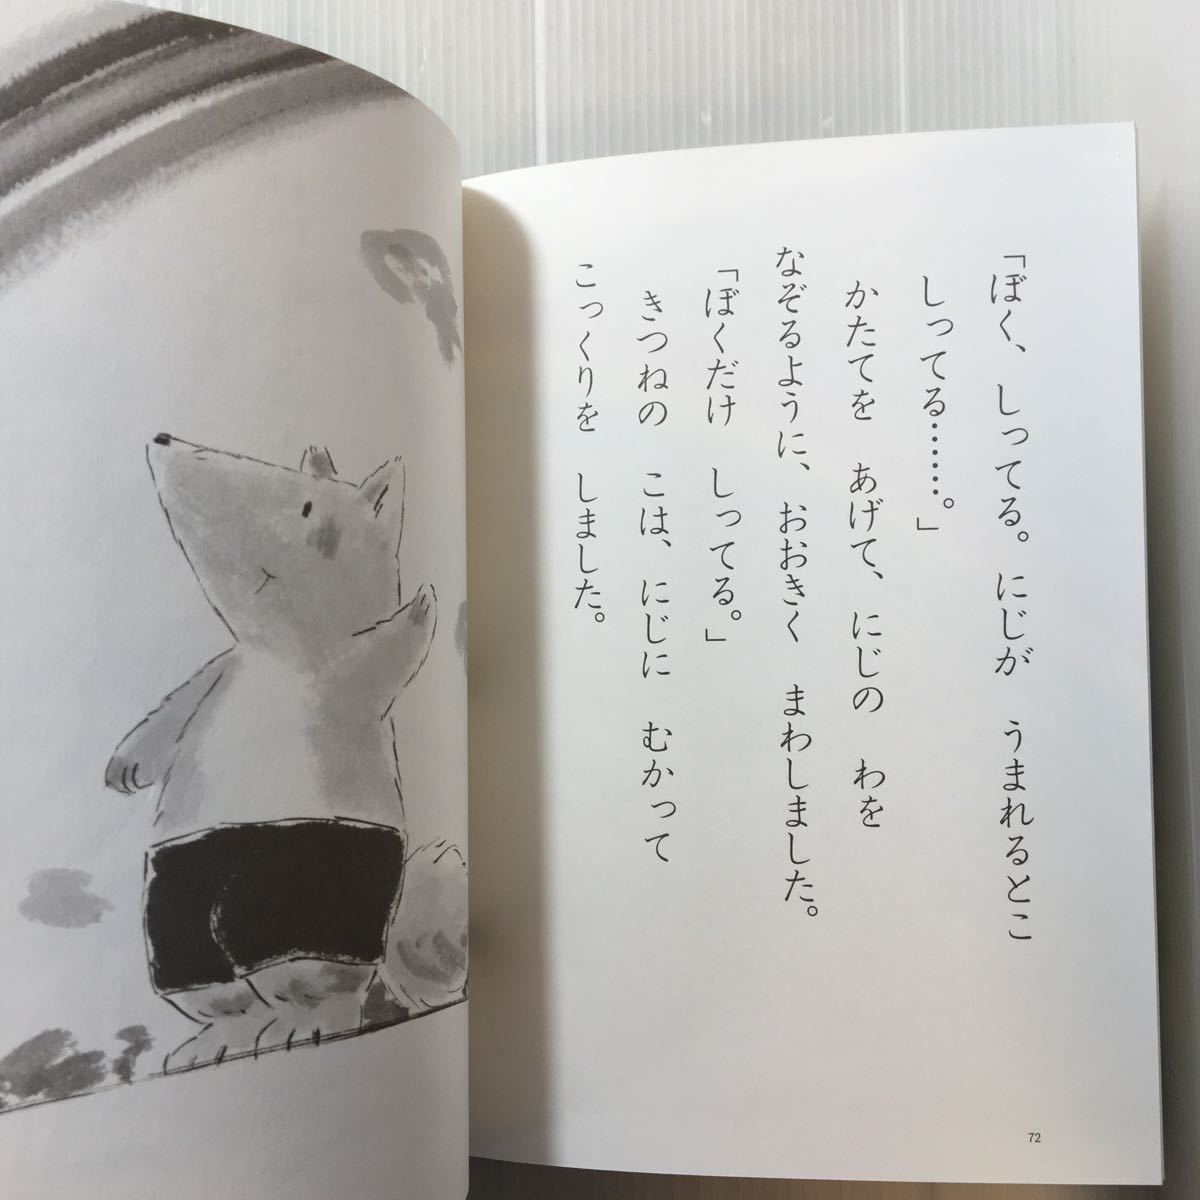 「ぼく、しってる。にじが　うまれるとこ
しってる……。」
かたてを　あげて、にじの　わを
なぞるように、おおきく　まわしました。
「ぼくだけ　しってる。」
きつねの　こは、にじに　むかって
こっくりを　しました。
72